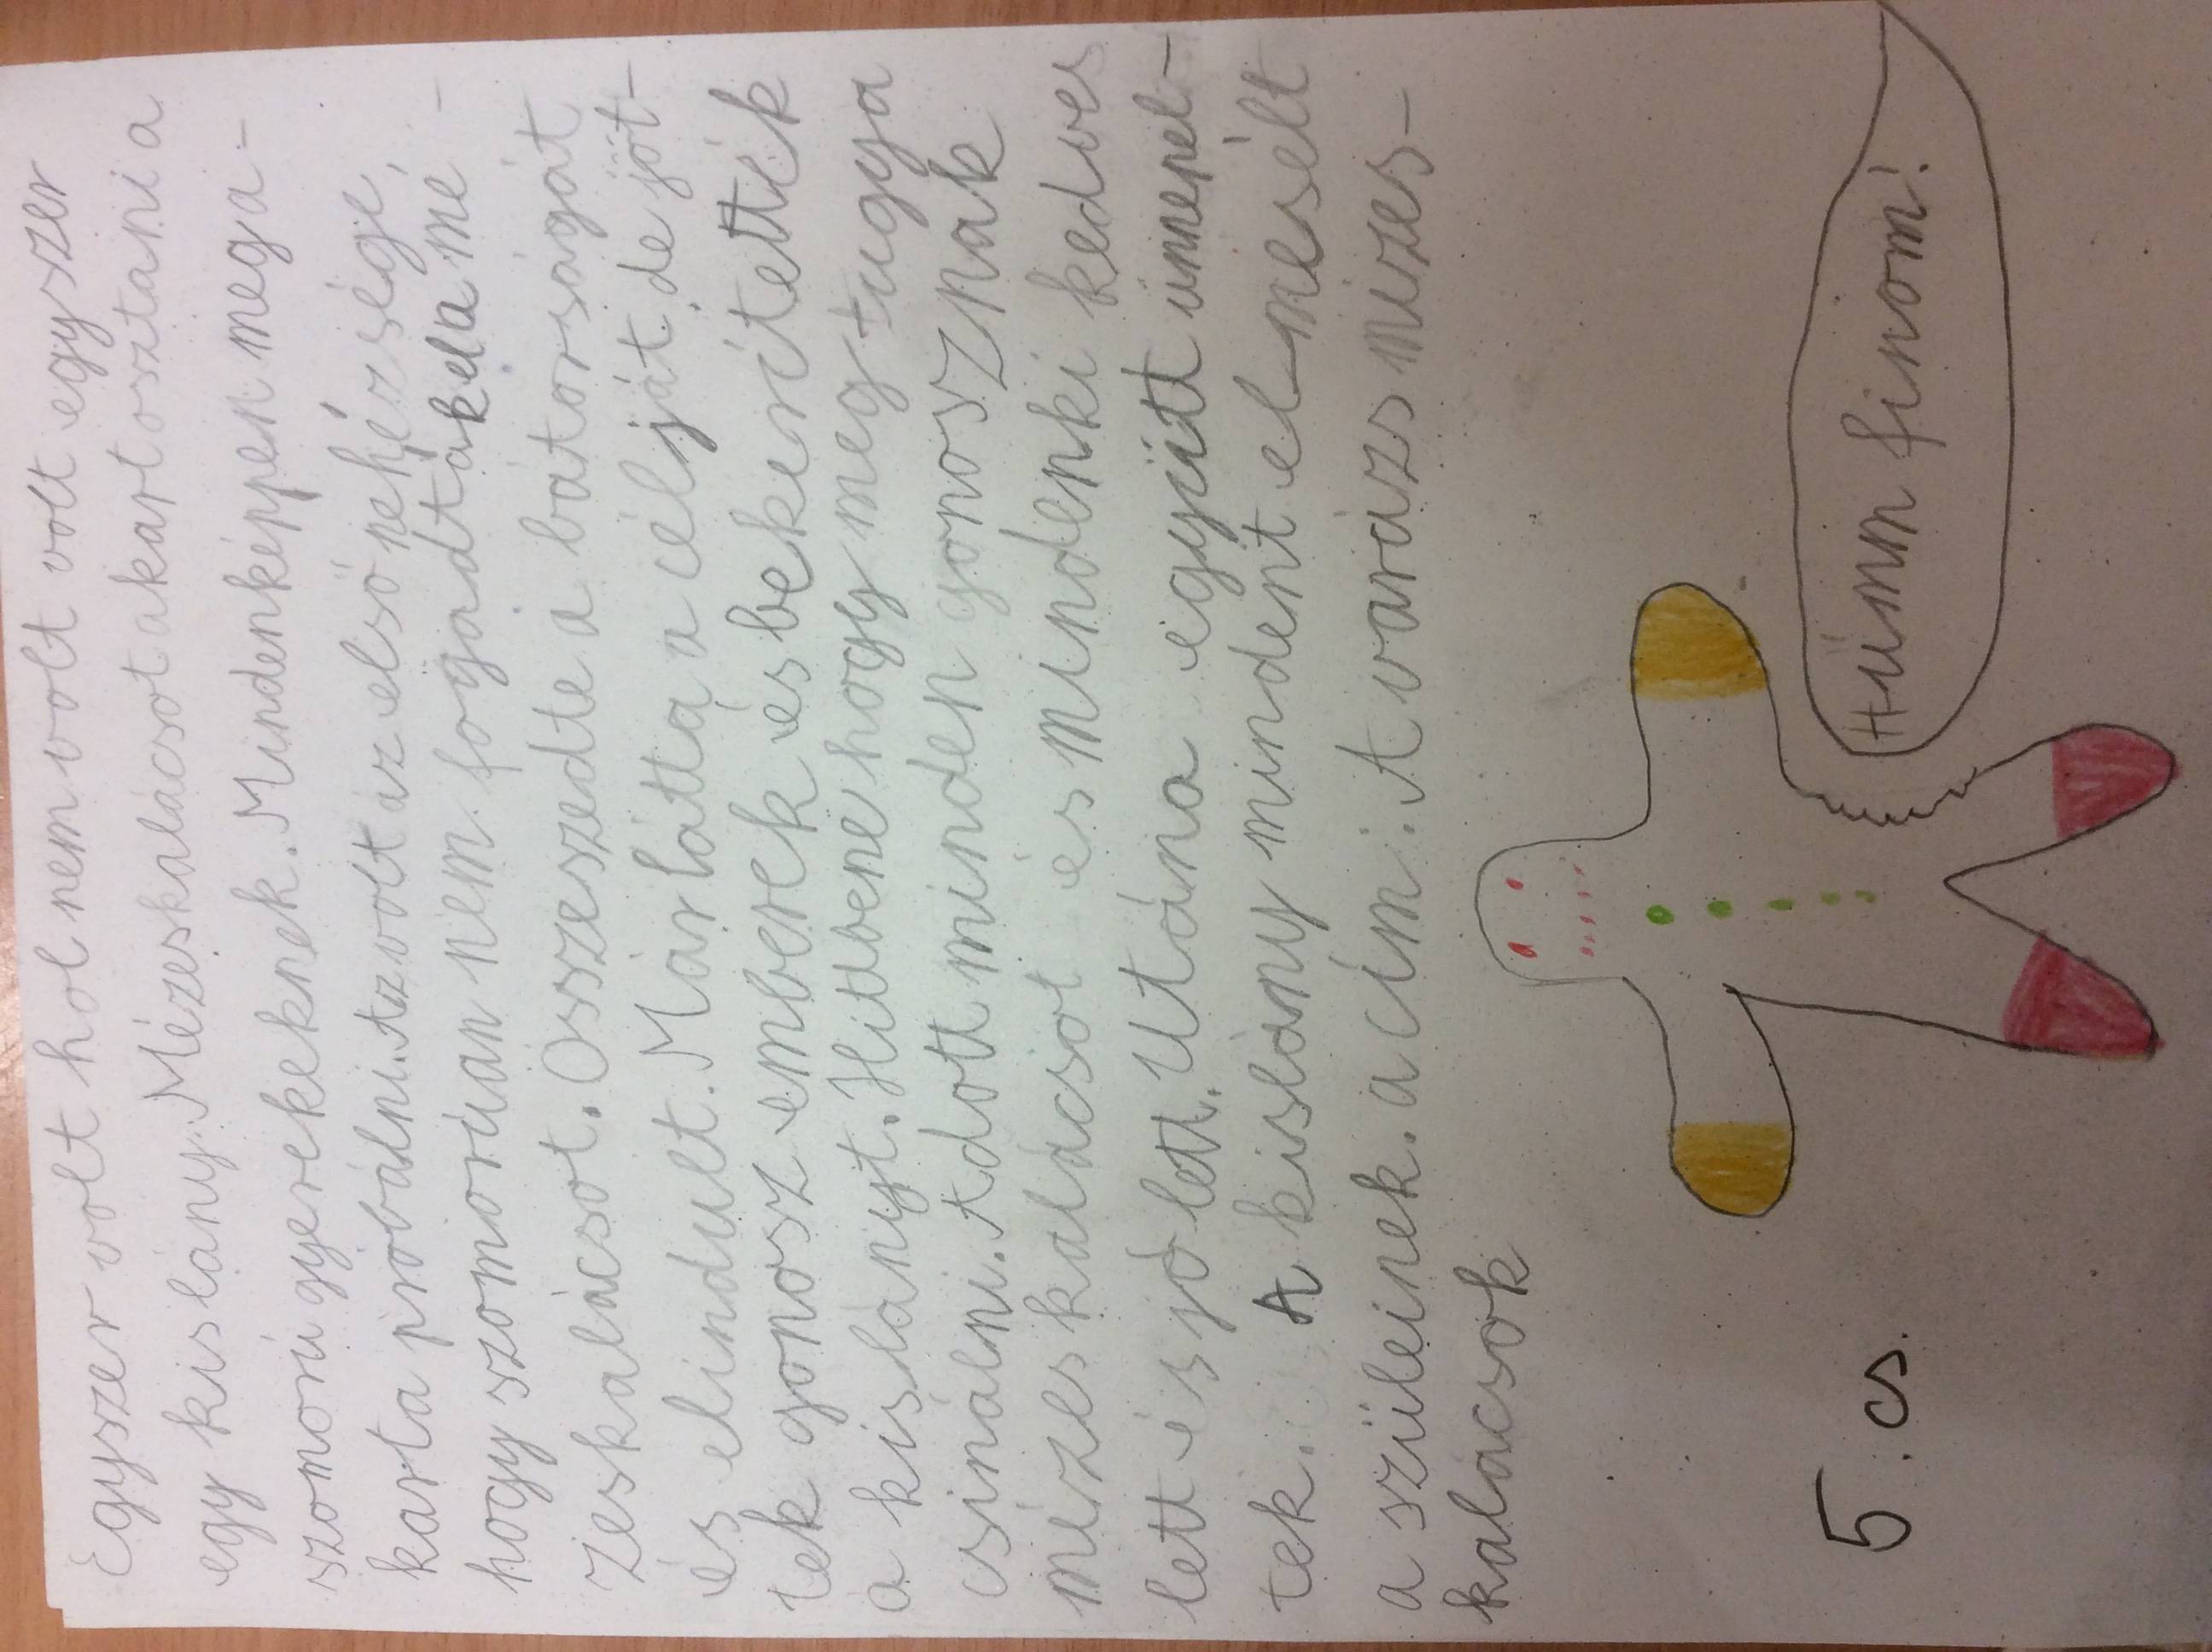 Egyszer volt hol nem volt volt egyszer
egy kislány. Mézeskalácsot akart osztani a
szomorú gyerekeknek. Mindenképpen mega-
karta próbálni. Az volt az első nehézsége,
hogy szomorúan nem fogadták el a mé-
zeskalácsot. Összeszedte a bátorságát
és elindult. Már látta a célját de jöt-
tek gonosz emberek és bekerítették
a kislányt. Hitt benne hogy meg tugya
csinálni. Adott minden gonosznak
mézeskalácsot és mindenki kedves
lett és jó lett. Utána együtt ünnepel-
tek. A kislány mindent el mesélt
a szüleinek. a cím: A varázs mézes-
kalácsok
Húmm finom!
5. cs.